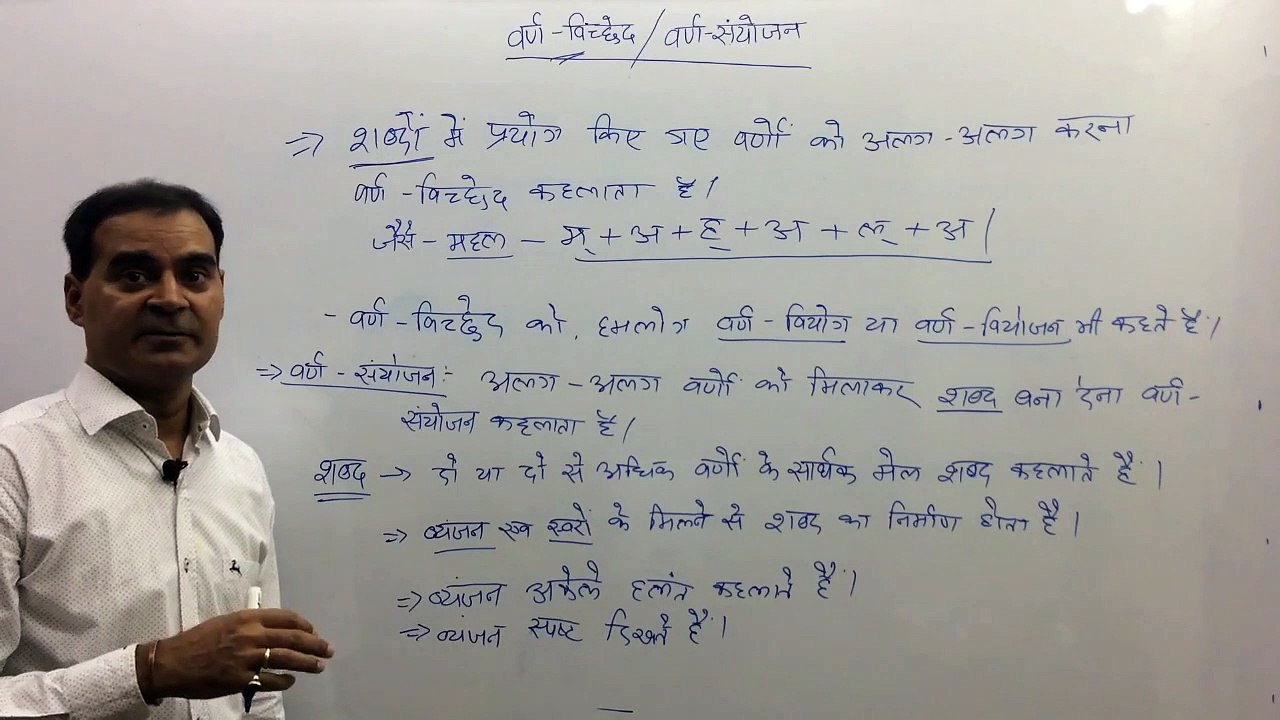 वर्ण-विच्छेद / वर्ण-संयोजन
=> शब्दों में प्रयोग किए गए वर्णों को अलग-अलग करना
वर्ण-विच्छेद कहलाता है।
जैसे - महल - म् + अ + ह् + अ + ल् + अ |
- वर्ण-विच्छेद को, हमलोग वर्ण-वियोग या वर्ण-वियोजन भी कहते हैं।
=> वर्ण-संयोजन:- अलग-अलग वर्णों को मिलाकर शब्द बना देना वर्ण-
संयोजन कहलाता है।
शब्द -> दो या दो से अधिक वर्णों के सार्थक मेल शब्द कहलाते हैं।
=> व्यंजन एव स्वरों के मिलने से शब्द का निर्माण होता है।
=> व्यंजन अकेले हलंत कहलाते हैं।
=> व्यंजन स्पष्ट दिखते हैं।